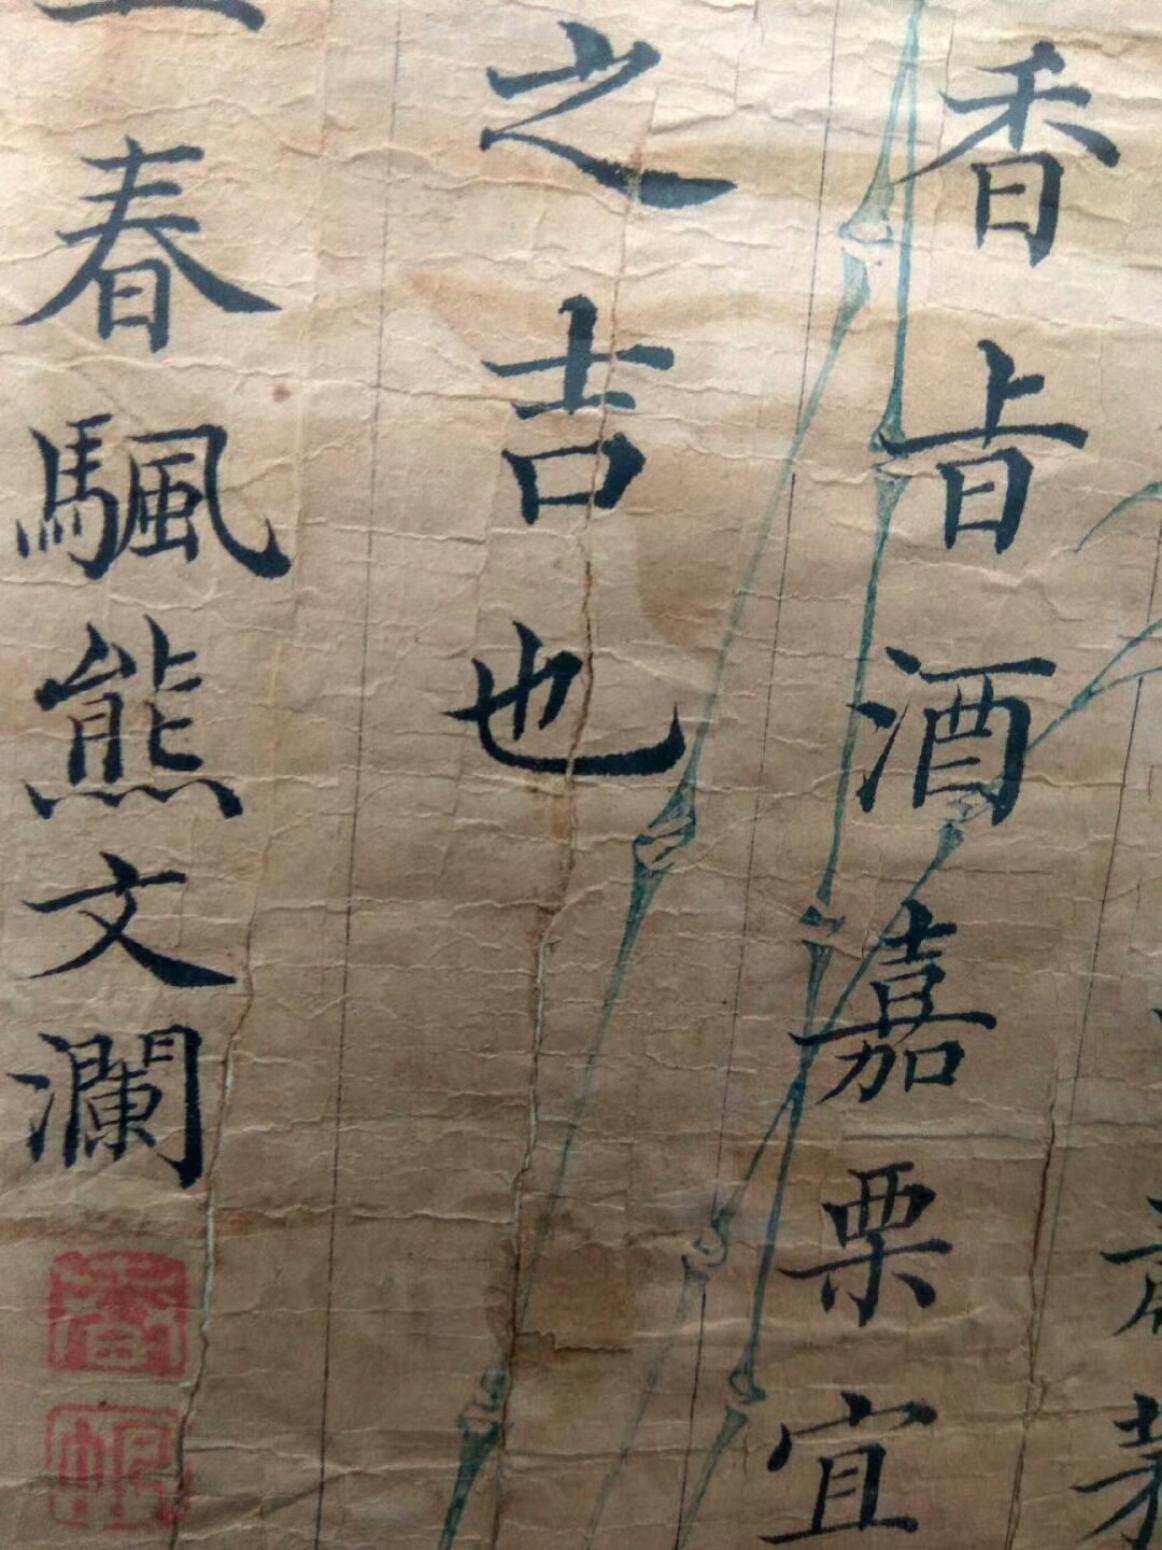 香㫖酒嘉栗宜
之吉也
春颿熊文瀾